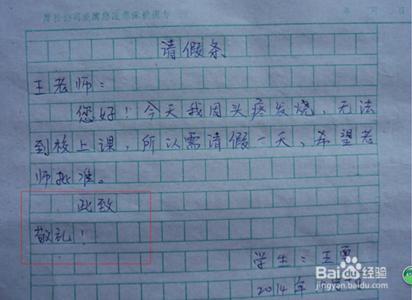 请假条
王老师：
您好！今天我因头疼发烧，无法
到校上课，所以需请假一天、希望老
师批准。
此致
敬礼！
学生：王勇
2014年
Baidu经验
jingyan.baidu.com